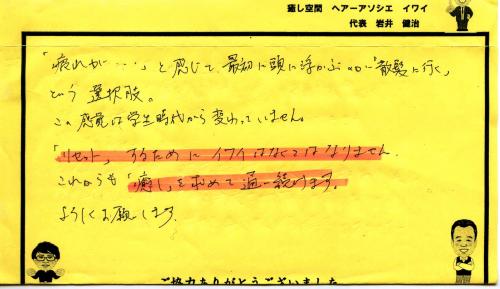 癒し空間 ヘアーアソシエ イワイ
代表 岩井 健治
「疲れが…」と感じて最初に頭に浮かぶのが「散髪に行く」
という選択肢。
この感覚は学生時代から変わっていません。
「リセット」するためにイワイはなくてはなりません。
これからも「癒し」を求めて通い続けます。
よろしくお願いします。
ご協力ありがとうございました